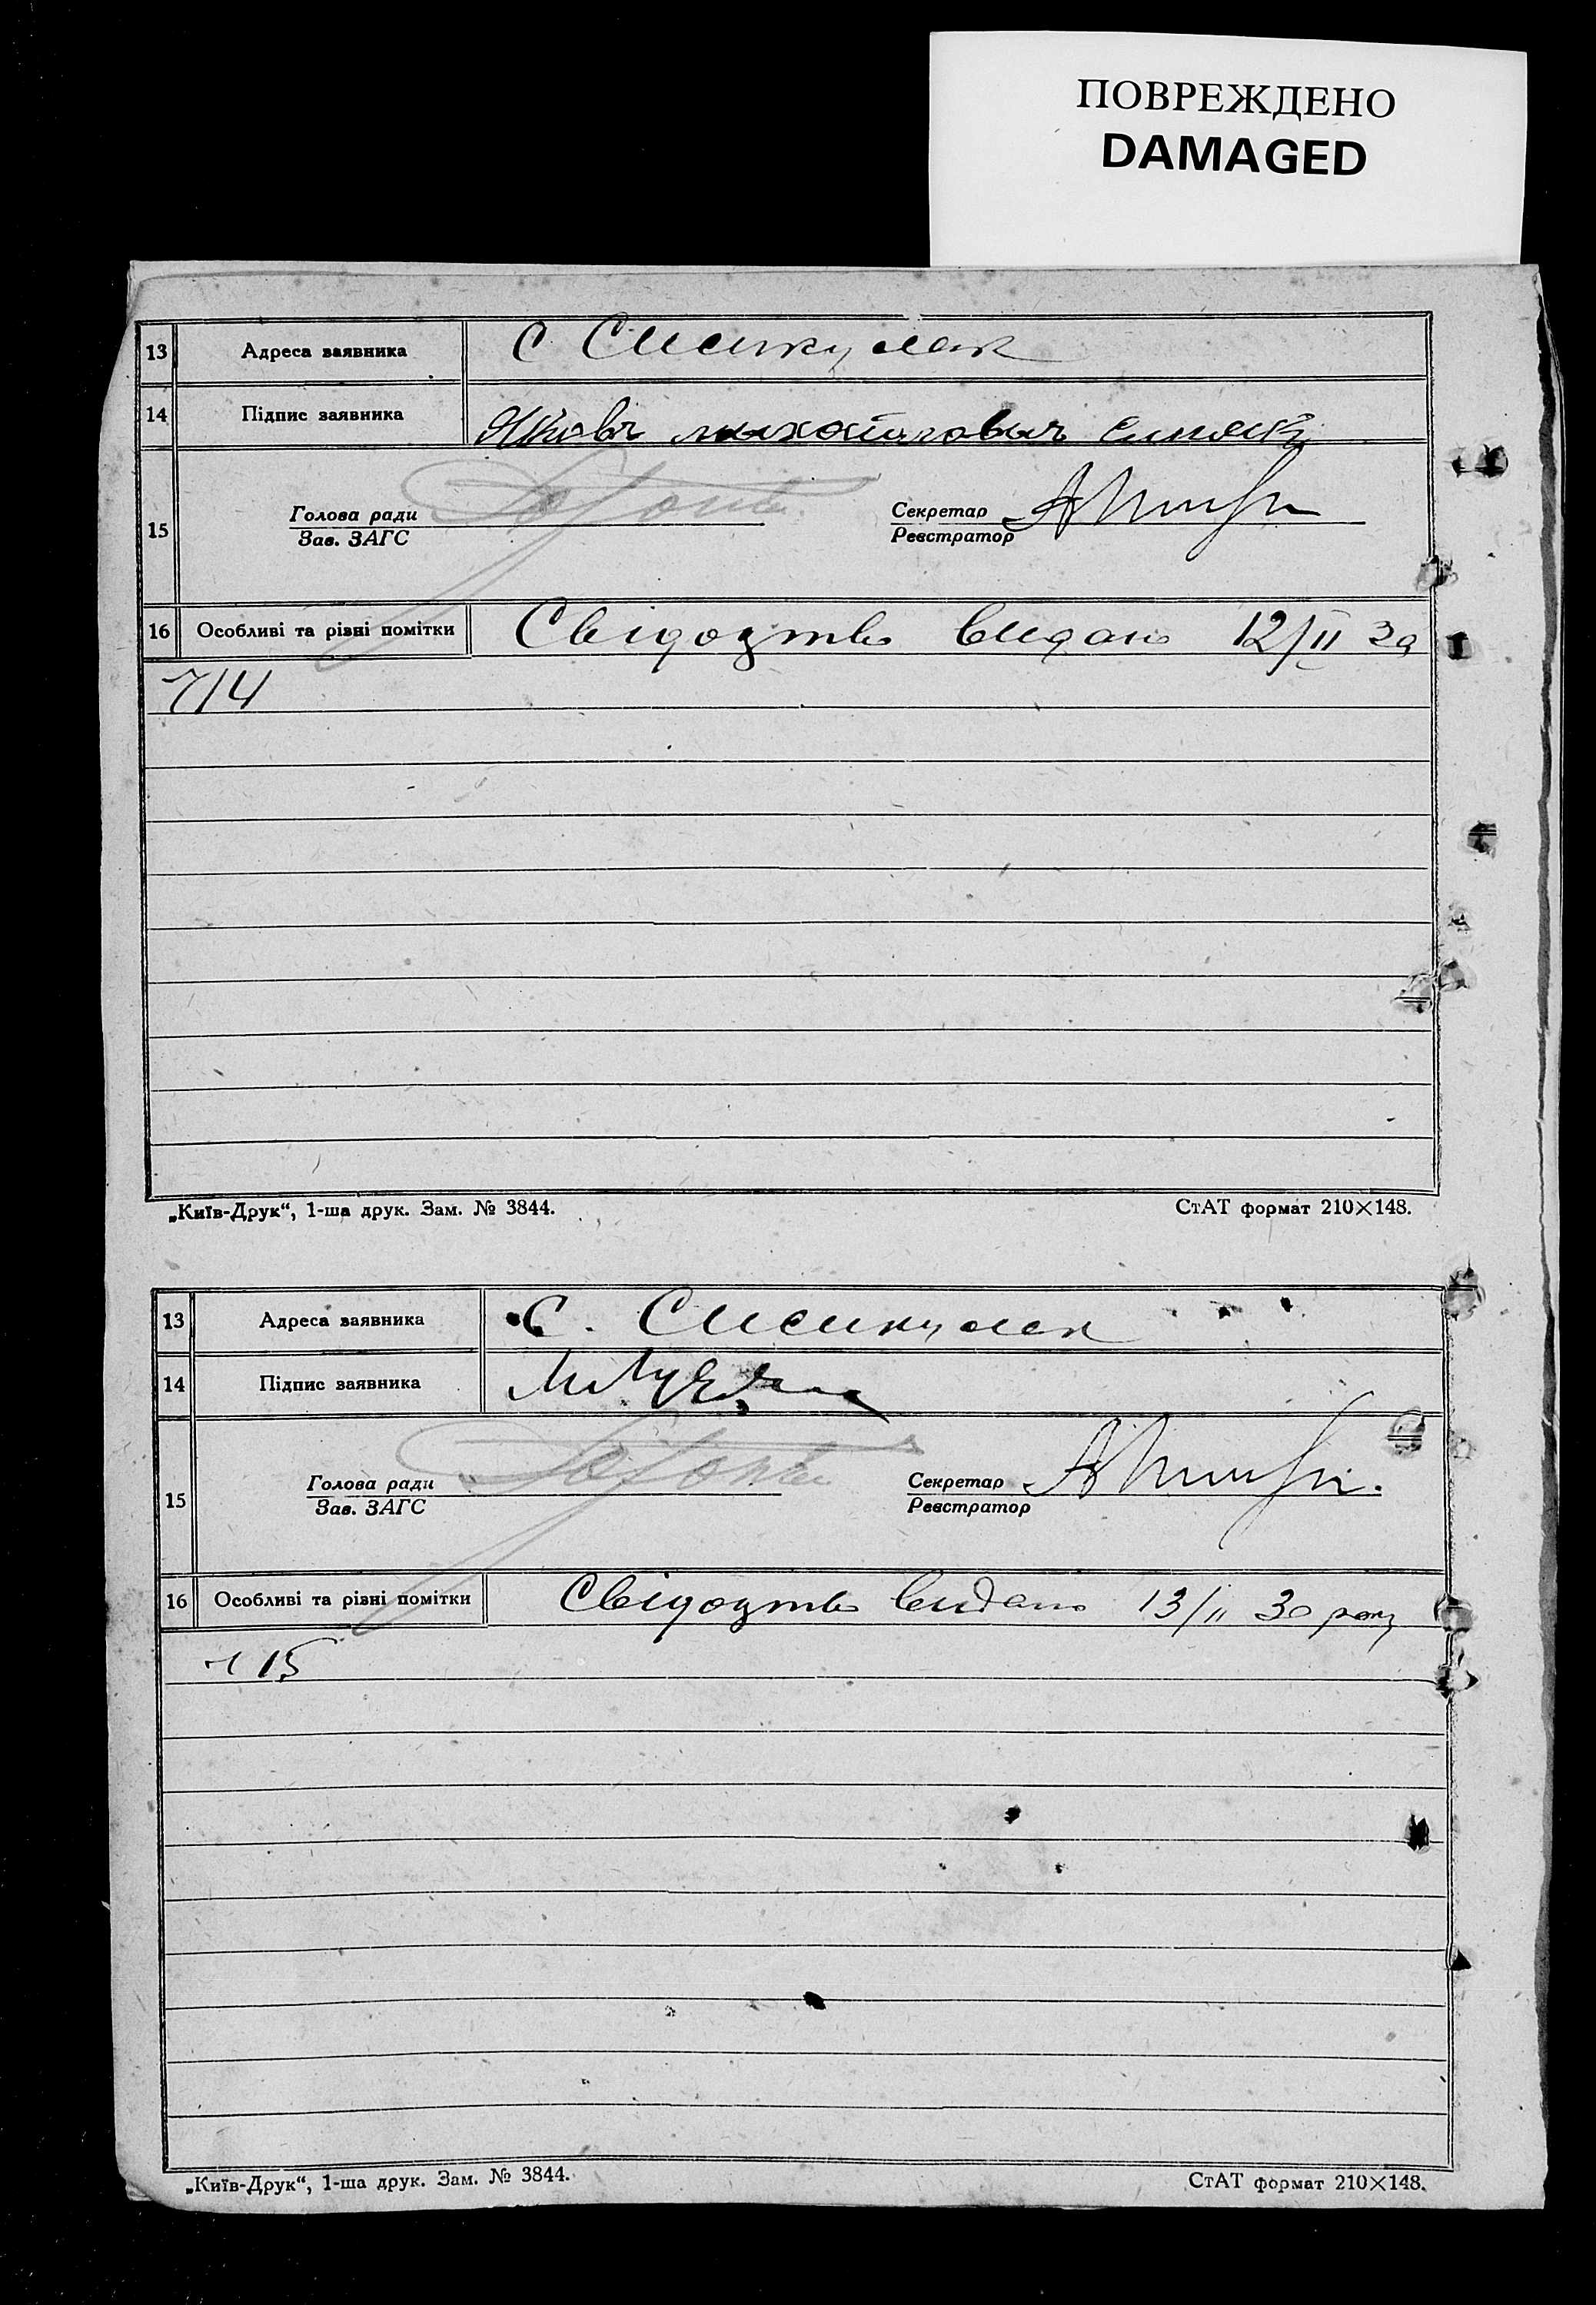 ПОВРЕЖДЕНО
DAMAGED
13 Адреса заявника с
14 Підпис заявника
Голова ради Секретар
15
Зав. ЗАГС Реєстратор
16 Особливі та різні помітки Свідоцтво видано 12/II 30
714
„Київ-Друк“, 1-ша друк. Зам. № 3844. СтАТ формат 210×148.
13 Адреса заявника с.
14 Підпис заявника
Голова ради Секретар
15
Зав. ЗАГС Реєстратор
16 Особливі та різні помітки Свідоцтво видано 13/II 30 року
15
„Київ-Друк“, 1-ша друк. Зам. № 3844. СтАТ формат 210×148.